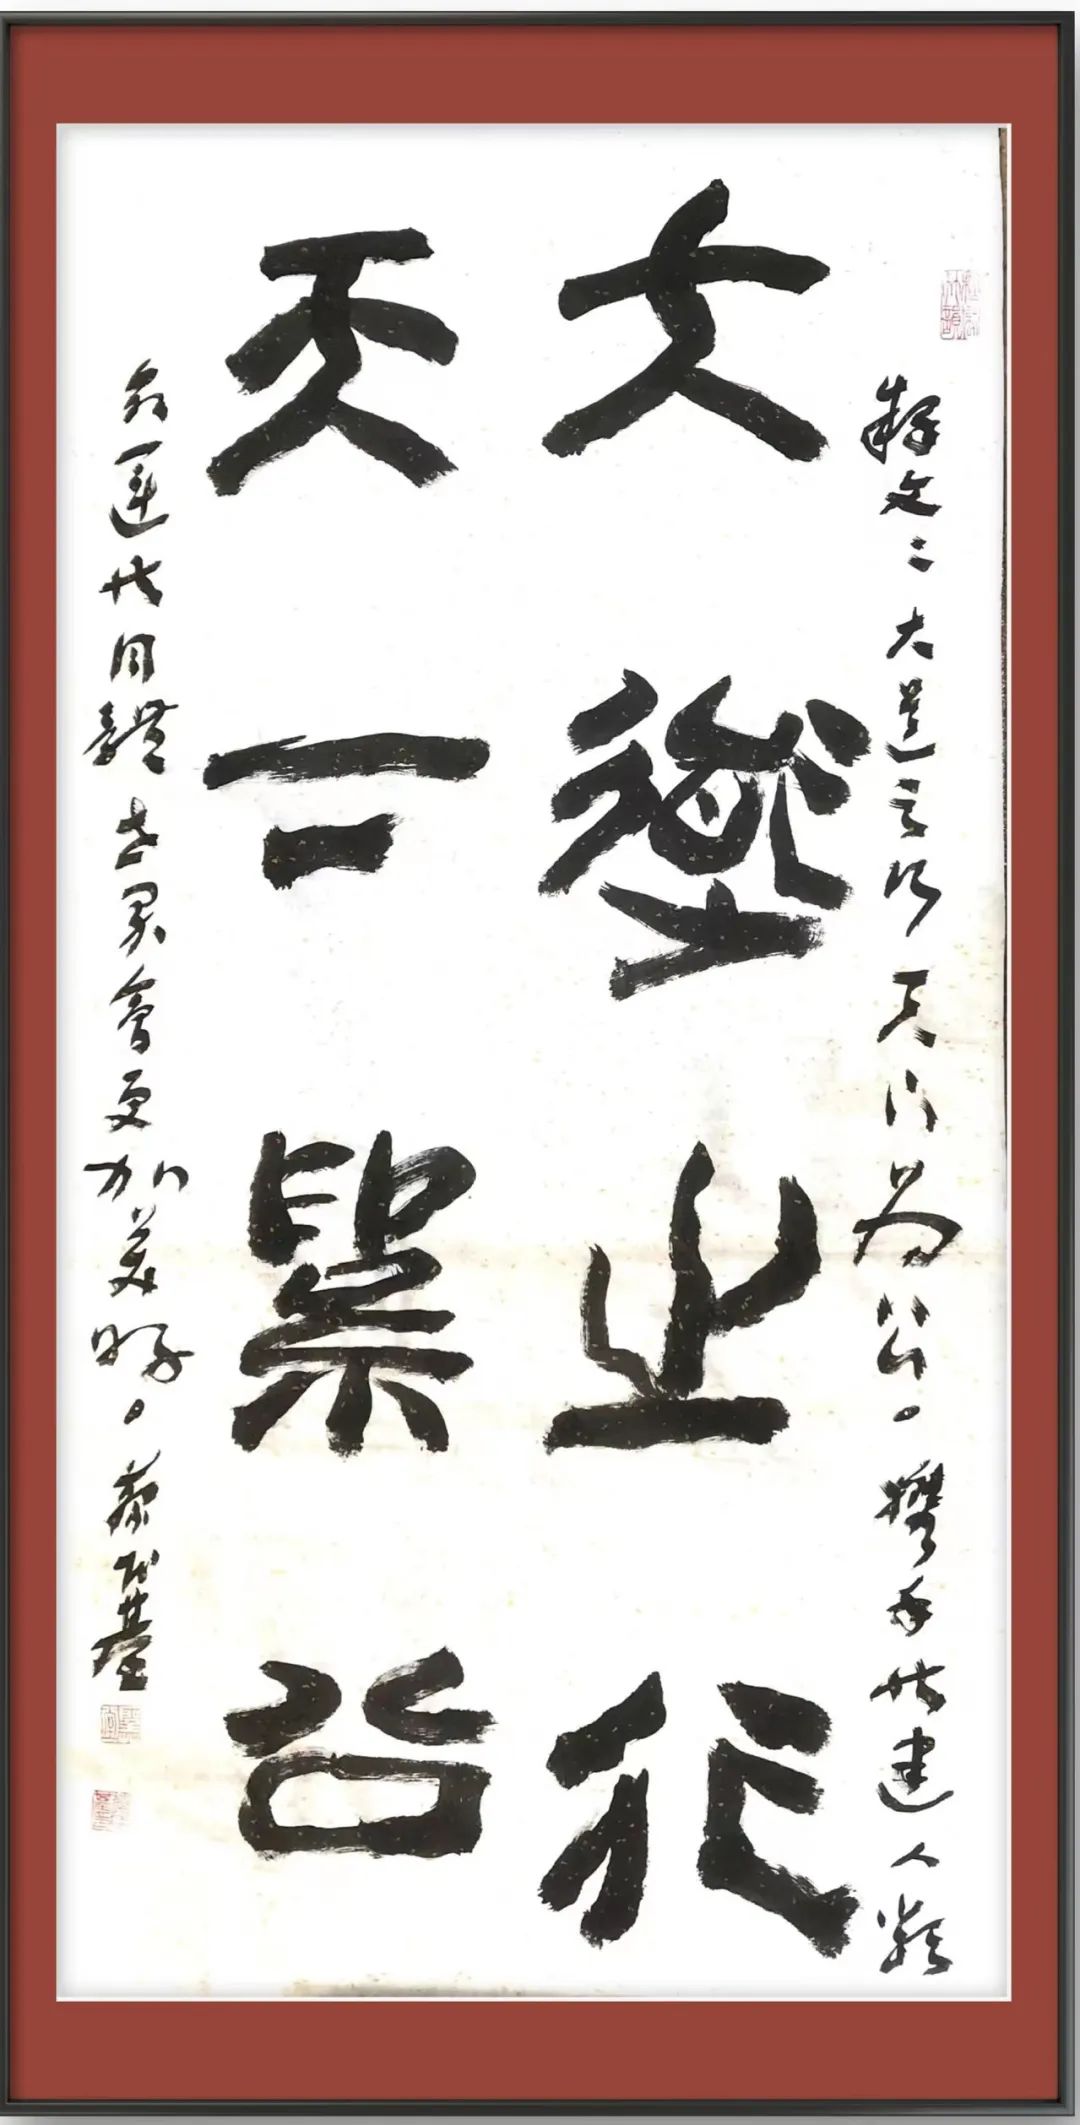 释文：大道之行天下为公。携手共建人類
大道之行
天下為公
命運共同體世界會更加美好。